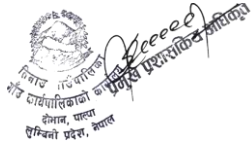 तिनाउ गाउँपालिका
गाउँ कार्यपालिकाको कार्यालय
दोभान, पाल्पा
लुम्बिनी प्रदेश, नेपाल
प्रमुख प्रशासकिय अधिकृत